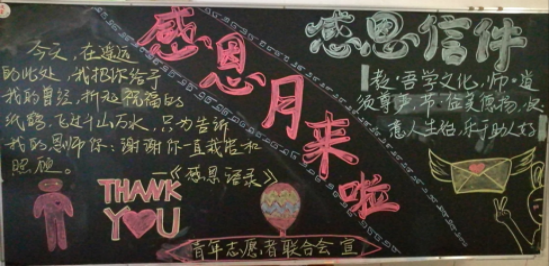 感恩月来啦
感恩信件
今天，在遥远
的此处，我把你给予
我的曾经，折起祝福的
纸鹤，飞过千山万水，只为告诉
我的恩师你：谢谢你一直我
照顾。
—《感恩语录》
教吾学文化，师道
须尊
意人生路，乐于助人好
THANK
YOU
青年志愿者联合会 宣